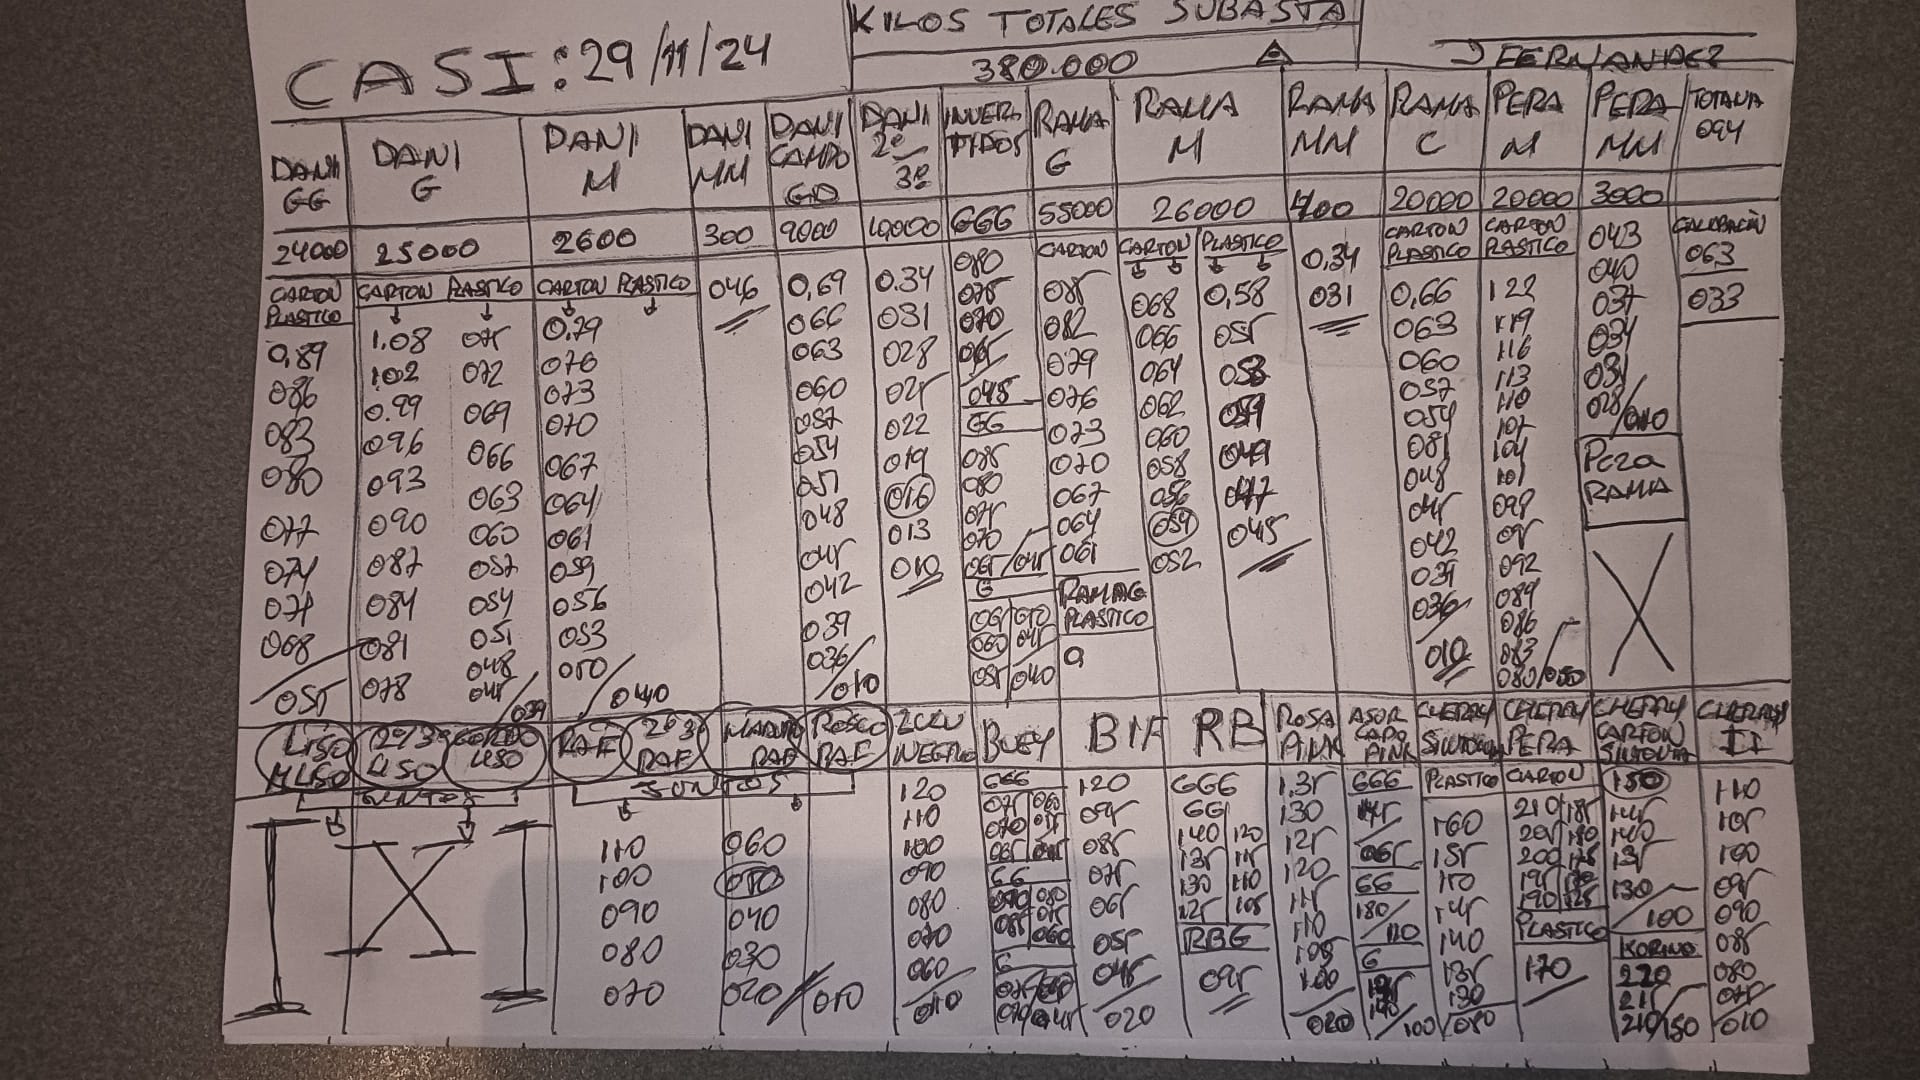 KILOS TOTALES SUBASTA
CASI: 29/11/24
380.000
J FERNANDEZ
DANI GG
DANI G
DANI M
DANI MM
DANI CAMPO GD
DANI 2ª 3ª
INVERTIDOS
RAMA G
RAMA M
RAMA MM
RAMA C
PERA M
PERA MM
TOTANA 094
24000
25000
2600
300
9000
10000
GGG
55000
26000
400
20000
20000
3000
CARTON PLASTICO
0,89
086
083
080
077
074
071
068
055
CARTON
1.08
102
0.99
096
093
090
087
084
081
078
PLASTICO
075
072
069
066
063
060
057
054
051
048
045/039
CARTON PLASTICO
0.79
076
073
070
067
064
061
059
056
053
050/040
046
0,69
066
063
060
057
054
051
048
045
042
039
036/010
0.34
031
028
025
022
019
016
013
010
080
075
070
065
045
GG
085
080
075
070
065/045
G
065 050
060 045
055 040
CARTON
085
082
079
076
073
070
067
064
061
RAMA G
PLASTICO
CARTON
068
066
064
062
060
058
056
054
052
PLASTICO
0,58
055
053
051
049
047
045
0,34
031
CARTON
PLASTICO
0,66
063
060
057
054
051
048
045
042
039
036
010
CARTON
PLASTICO
122
119
116
113
110
107
104
101
098
095
092
089
086
083
080/050
043
040
037
034
031
028/010
PERA
RAMA
CALABACIN
063
033
LISO M LISO
2ª/3ª LISO
GORDO LISO
JUNTOS
RAF
2ª3ª RAF
MADURO RAF
ROSCO RAF
JUNTOS
110
100
090
080
070
060
050
040
030
020/010
ZULU
NEGRO
120
110
100
090
080
070
060
010
BUEY
GGG
075 060
070 055
065 045
GG
090 080
085 075
060
G
BIF
120
095
085
075
065
055
045
020
RB
GGG
GG
140 120
135 115
130 110
125 105
RBG
095
ROSA
PINK
1,35
130
125
120
115
110
105
100
020
ASUR
CADO
PINK
GGG
145
065
GG
180/110
G
140/100
CHERRY
SINTONIA
PLASTICO
160
155
150
145
140
135
130
080
CHERRY
PERA
CARTON
210 185
205 180
200 175
195 170
190 125
PLASTICO
170
CHERRY
CARTON
SINTONIA
150
145
140
135
130
100
KORINO
220
215
210/150
CHERRY
II
110
105
100
095
090
085
080
075
010